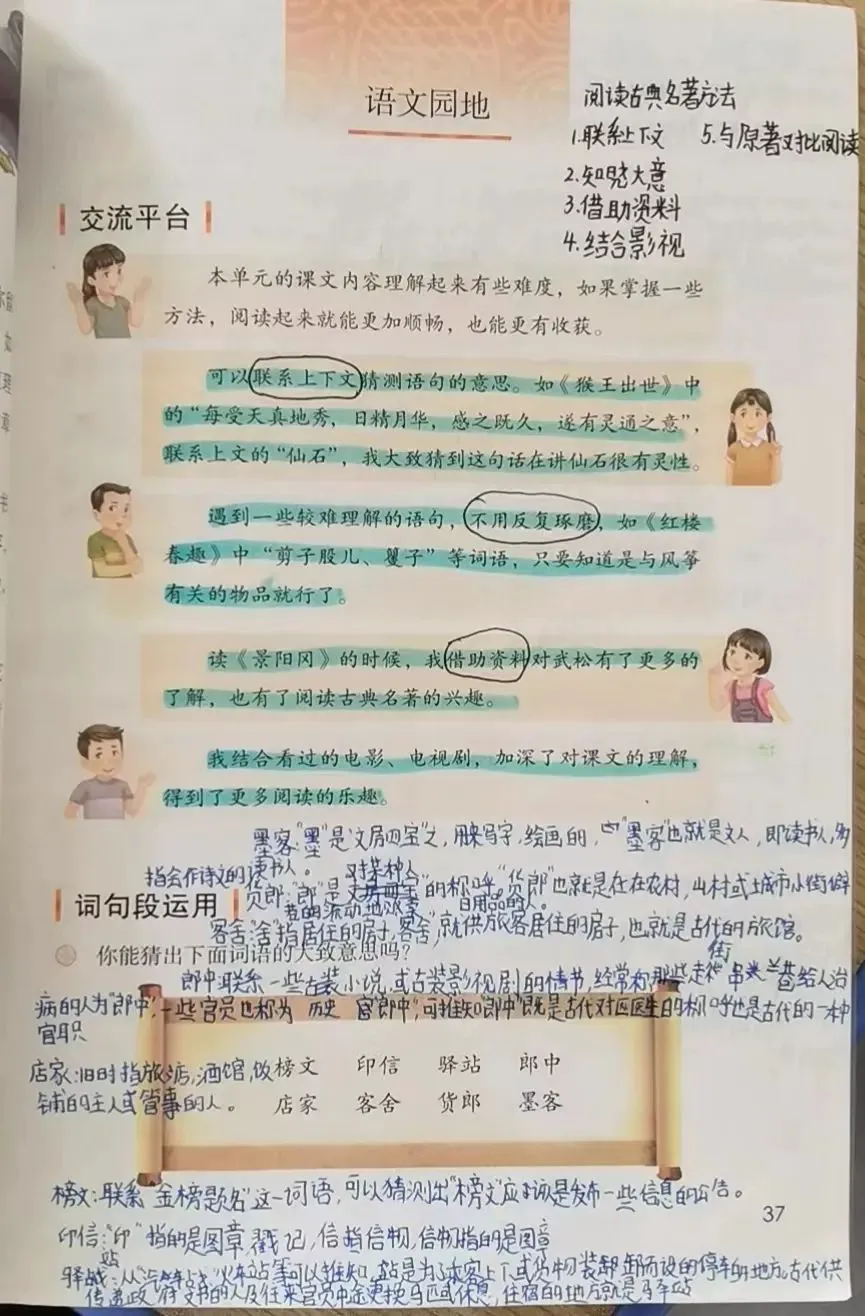 语文园地
阅读古典名著方法
1.联系上下文 5.与原著对比阅读
2.知晓大意
3.借助资料
4.结合影视
交流平台
本单元的课文内容理解起来有些难度，如果掌握一些
方法，阅读起来就能更加顺畅，也能更有收获。
可以联系上下文猜测语句的意思。如《猴王出世》中
的“每受天真地秀，日精月华，感之既久，遂有灵通之意”，
联系上文的“仙石”，我大致猜到这句话在讲仙石很有灵性。
遇到一些较难理解的语句，不用反复琢磨，如《红楼
春趣》中“剪子股儿、籰子”等词语，只要知道是与风筝
有关的物品就行了。
读《景阳冈》的时候，我借助资料对武松有了更多的
了解，也有了阅读古典名著的兴趣。
我结合看过的电影、电视剧，加深了对课文的理解，
得到了更多阅读的乐趣。
墨客:“墨”是“文房四宝”之，用来写字，绘画的，“墨客”也就是文人，即读书人，多
指会作诗文的读书人。 对某种人
货郎:“郎”是 的称呼。“货郎”也就是在农村，山村或城市小街僻
的流动地贩卖 日用品的人。
词句段运用
客舍:“舍”指居住的房子，客舍，就供旅客居住的房子，也就是古代的旅馆。
你能猜出下面词语的大致意思吗？
街
郎中:联系一些古装小说，或古装影视剧的情节，经常称那些走 串 给人治
病的人为“郎中”，一些官员也称为 历史 官“郎中”，可推知“郎中”既是古代对医生的称呼也是古代的一种
官职
店家:旧时指旅店，酒馆，饭
铺的主人或管事的人。
榜文 印信 驿站 郎中
店家 客舍 货郎 墨客
榜文:联系“金榜题名”这一词语，可以猜测出“榜文”应该是发布一些信息的公告。
印信:“印”指的是图章，戳记，信指信物，信物指的是图章
站
驿战:从“汽车战”火车站等可以推知，站是为了乘客上下或货物装卸而设的停车的地方，古代供
传递政府文书的人及往来官员中途更换马匹或休息，住宿的地方就是马车站
37